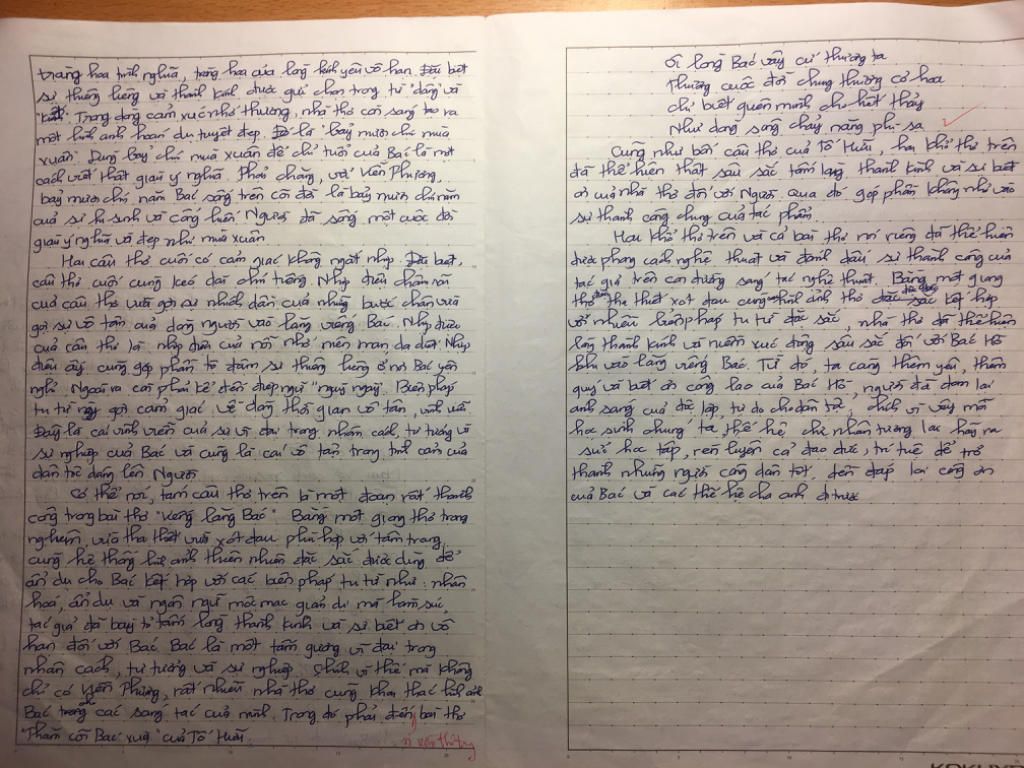 tràng hoa tình nghĩa, tràng hoa của lòng kính yêu vô hạn. Đặc biệt
sự thiêng liêng và thành kính được gửi chọn trong từ "dâng" và
Trong dòng cảm xúc nhớ thương, nhà thơ còn sáng tạo ra
một hình ảnh hoán dụ tuyệt đẹp. Đó là "bảy mươi chín mùa
xuân". Dùng bảy chín mùa xuân để chỉ tuổi của Bác là một
cách viết thật giàu ý nghĩa. Phải chăng, với Viễn Phương,
bảy mươi chín năm Bác sống trên cõi đời là bảy mươi chín năm
của sự hi sinh và cống hiến. Người đã sống một cuộc đời
giàu ý nghĩa và đẹp như mùa xuân
Hai câu thơ cuối có cảm giác không ngắt nhịp. Đặc biệt,
câu thơ cuối cùng kéo dài chín tiếng. Nhịp điệu chậm rãi
của câu thơ vừa gợi sự nhích dần của những bước chân vừa
gợi sự vô tận của dòng người vào lăng viếng Bác. Nhịp điệu
của câu thơ là nhịp điệu của nỗi nhớ miên man da diết. Nhịp
điệu ấy cũng góp phần tô đậm sự thiêng liêng ở nơi Bác yên
nghỉ. Ngoài ra còn phải kể đến điệp ngữ "ngày ngày". Biện pháp
tu từ này gợi cảm giác về dòng thời gian vô tận, vĩnh viễn.
Đấy là cái vĩnh viễn của sự vĩ đại trong nhân cách, tư tưởng và
sự nghiệp của Bác và cũng là cái vô tận trong tình cảm của
dân tộc dâng lên Người.
Có thể nói, tám câu thơ trên là một đoạn rất thành
công trong bài thơ "Viếng lăng Bác". Bằng một giọng thơ trang
nghiêm, vừa tha thiết vừa xót đau phù hợp với tâm trạng
cùng hệ thống hình ảnh thiên nhiên đặc sắc được dùng để
ẩn dụ cho Bác kết hợp với các biện pháp tu từ như: nhân
hoá, ẩn dụ và ngôn ngữ mộc mạc giản dị mà hàm súc,
tác giả đã bày tỏ tấm lòng thành kính và sự biết ơn vô
hạn đối với Bác. Bác là một tấm gương vĩ đại trong
nhân cách, tư tưởng và sự nghiệp. Chính vì thế mà không
chỉ có Viễn Phương, rất nhiều nhà thơ cũng khai thác hình ảnh
Bác trong các sáng tác của mình. Trong đó phải đến bài thơ
"Thăm cõi Bác xưa" của Tố Hữu.
Ôi lòng Bác vậy cứ thương ta
Thương cuộc đời chung thương cỏ hoa
Chỉ biết quên mình cho hết thảy
Như dòng sông chảy nặng phù sa
Cũng như bốn câu thơ của Tố Hữu, hai khổ thơ trên
đã thể hiện thật sâu sắc tấm lòng thành kính và sự biết
ơn của nhà thơ đối với Người. Qua đó góp phần không nhỏ vào
sự thành công chung của tác phẩm.
Hai khổ thơ trên và cả bài thơ nói riêng đã thể hiện
được phong cách nghệ thuật và đánh dấu sự thành công của
tác giả trên con đường sáng tác nghệ thuật. Bằng một giọng
thơ tha thiết xót đau cùng hình ảnh thơ đặc sắc kết hợp
với nhiều biện pháp tu từ đặc sắc, nhà thơ đã thể hiện
lòng thành kính và niềm xúc động sâu sắc đối với Bác Hồ
khi vào lăng viếng Bác. Từ đó, ta càng thêm yêu, thêm
quý và biết ơn công lao của Bác Hồ, người đã đem lại
ánh sáng của độc lập, tự do cho dân tộc, chính vì vậy mà
học sinh chúng ta, thế hệ chủ nhân tương lai hãy ra
sức học tập, rèn luyện cả đạo đức, trí tuệ để trở
thành những người công dân tốt, đền đáp lại công ơn
của Bác và các thế hệ cha anh đi trước